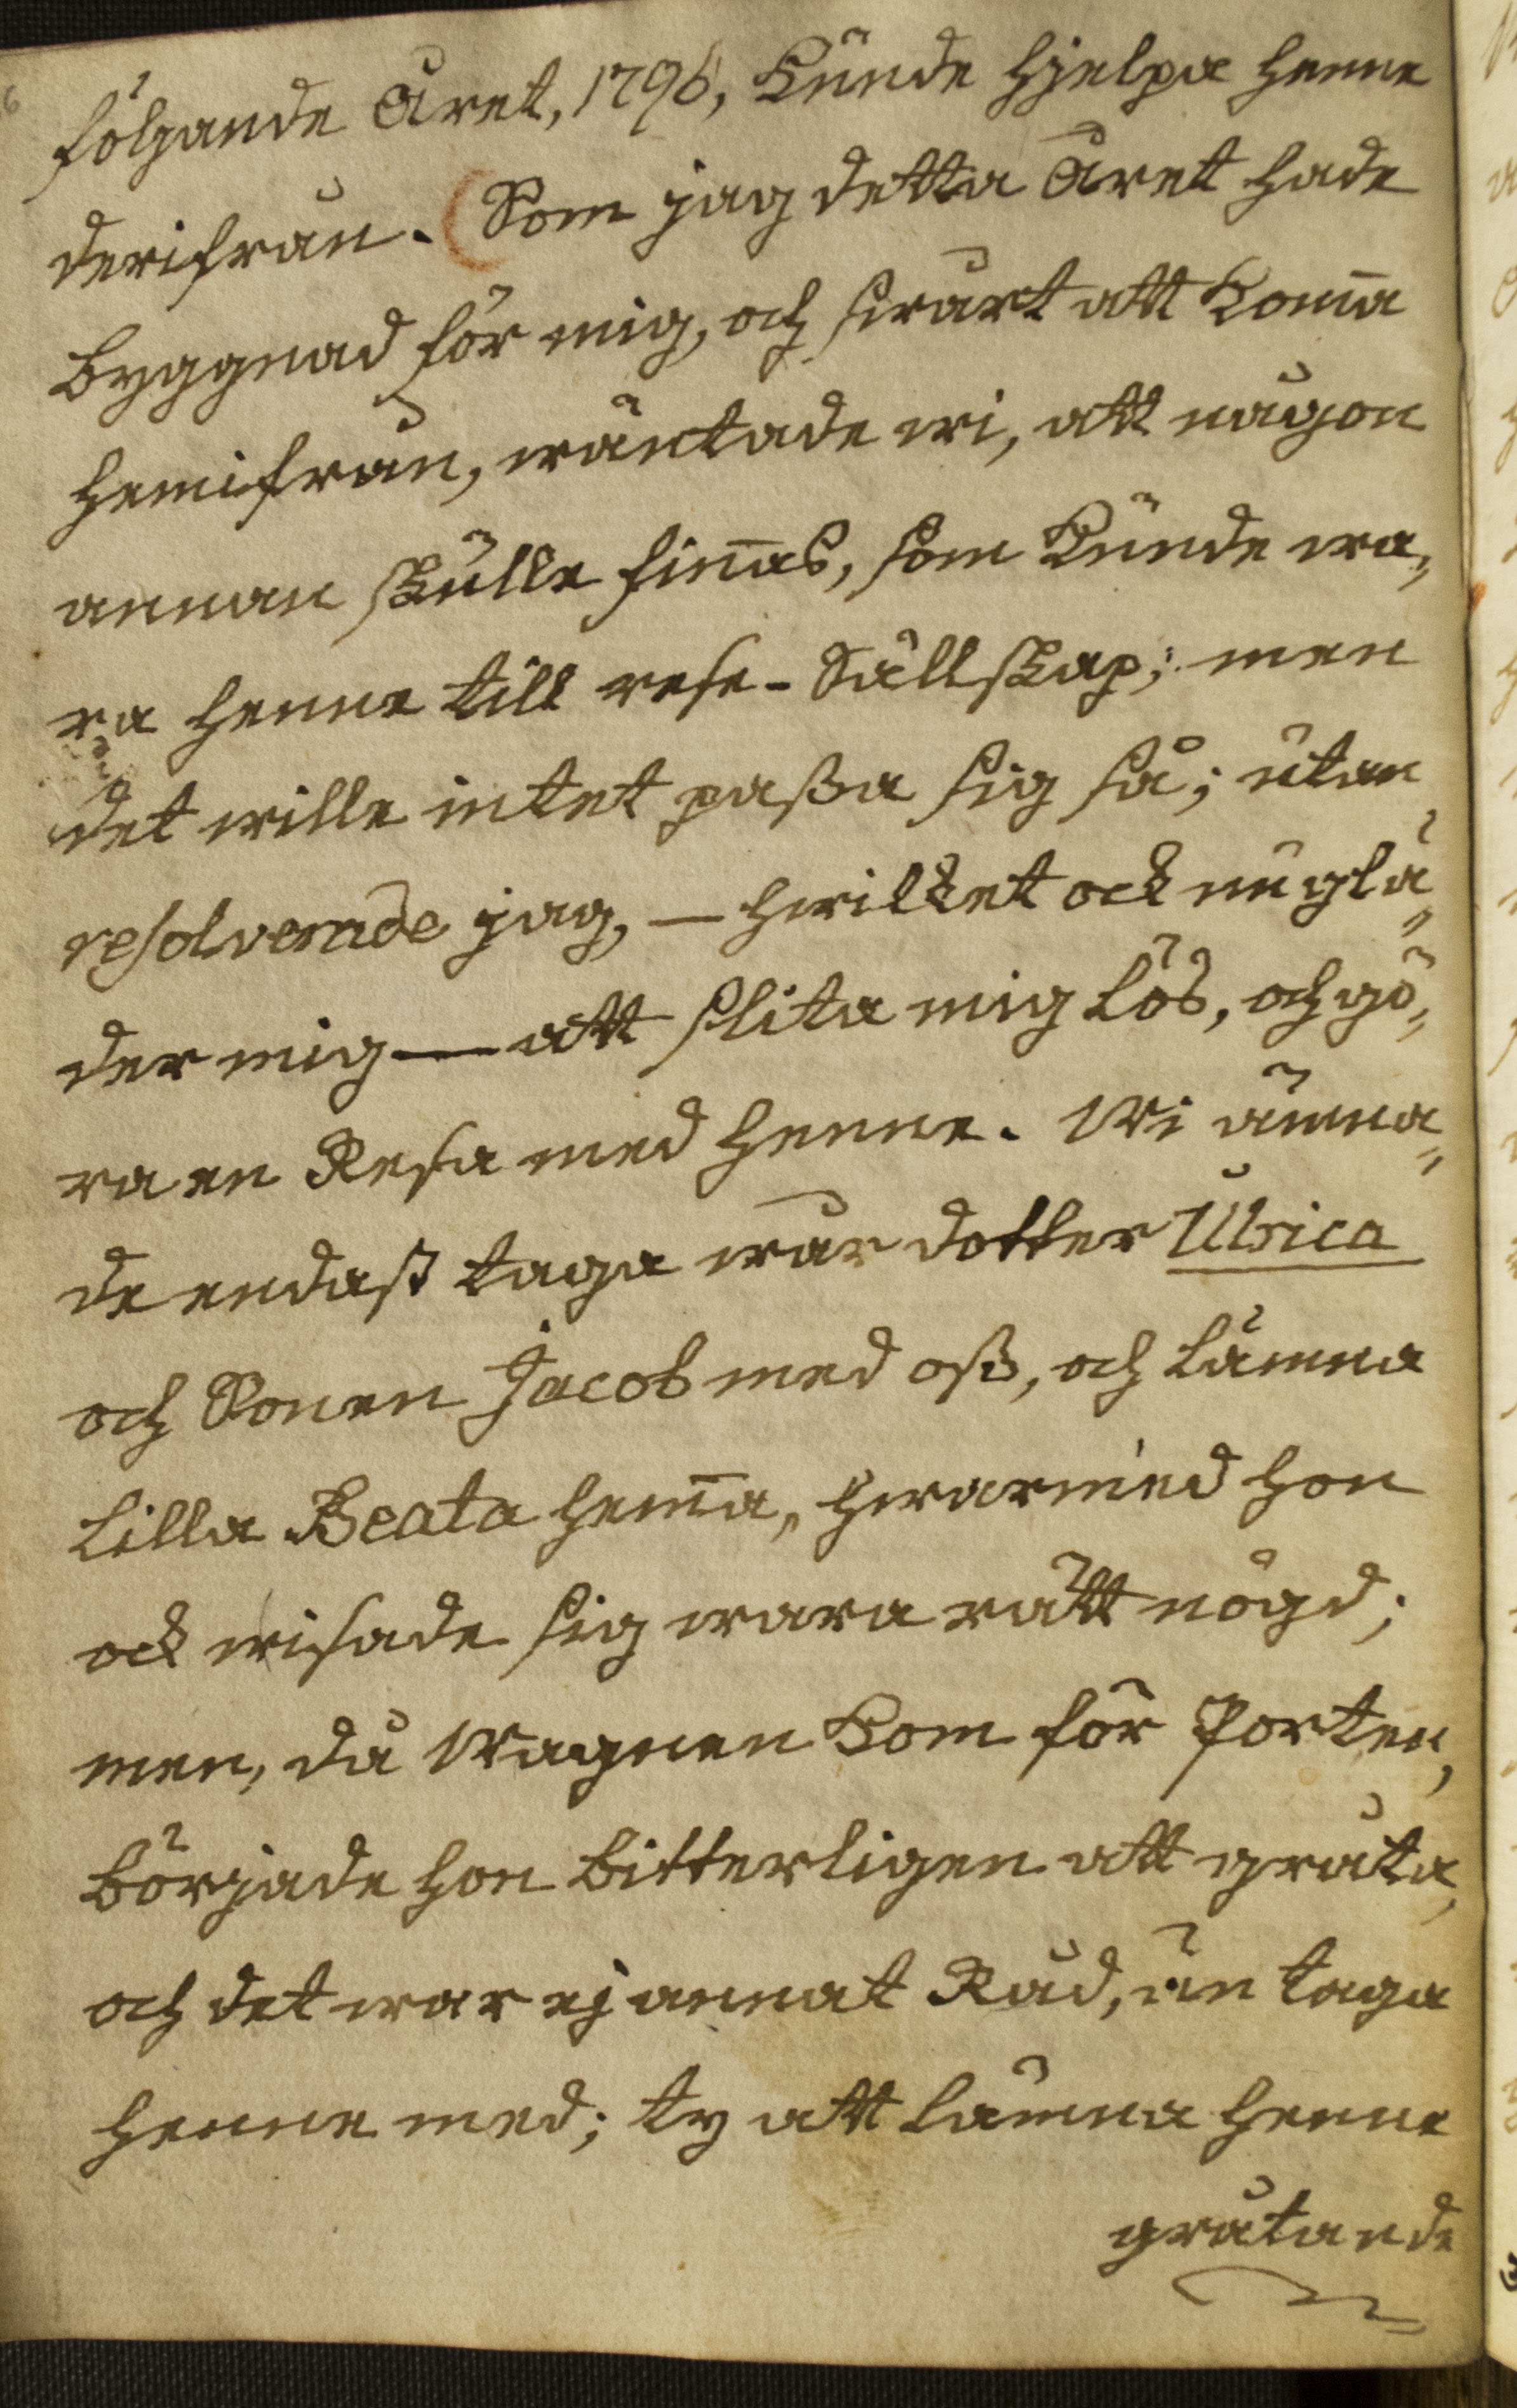 följande Året, 1796, kunde hjelpa henne
derifrån. (Som jag detta Året hade
byggnad för mig, och swårt att kom̄a
hemifrån, wäntade wi, att någon
annan skulle fin̄as, som kunde wa„
ra henne till rese-Sällskap; men
det wille intet passa sig så; utan
resolverade jag, — hwilket ock nu glä„
der mig — att slita mig lös, och gö„
ra en Resa med henne. Wi ämna„
de endast taga wår dotter Ulrica
och Sonen Jacob med oss, och lämna
lilla Beata hem̄a, hwarmed hon
ock wisade sig wara rätt nögd;
men, då Wagnen kom för Porten,
började hon bitterligen att gråta,
och det war ej annat Råd, än taga
henne med; ty att lämna henne
gråtande